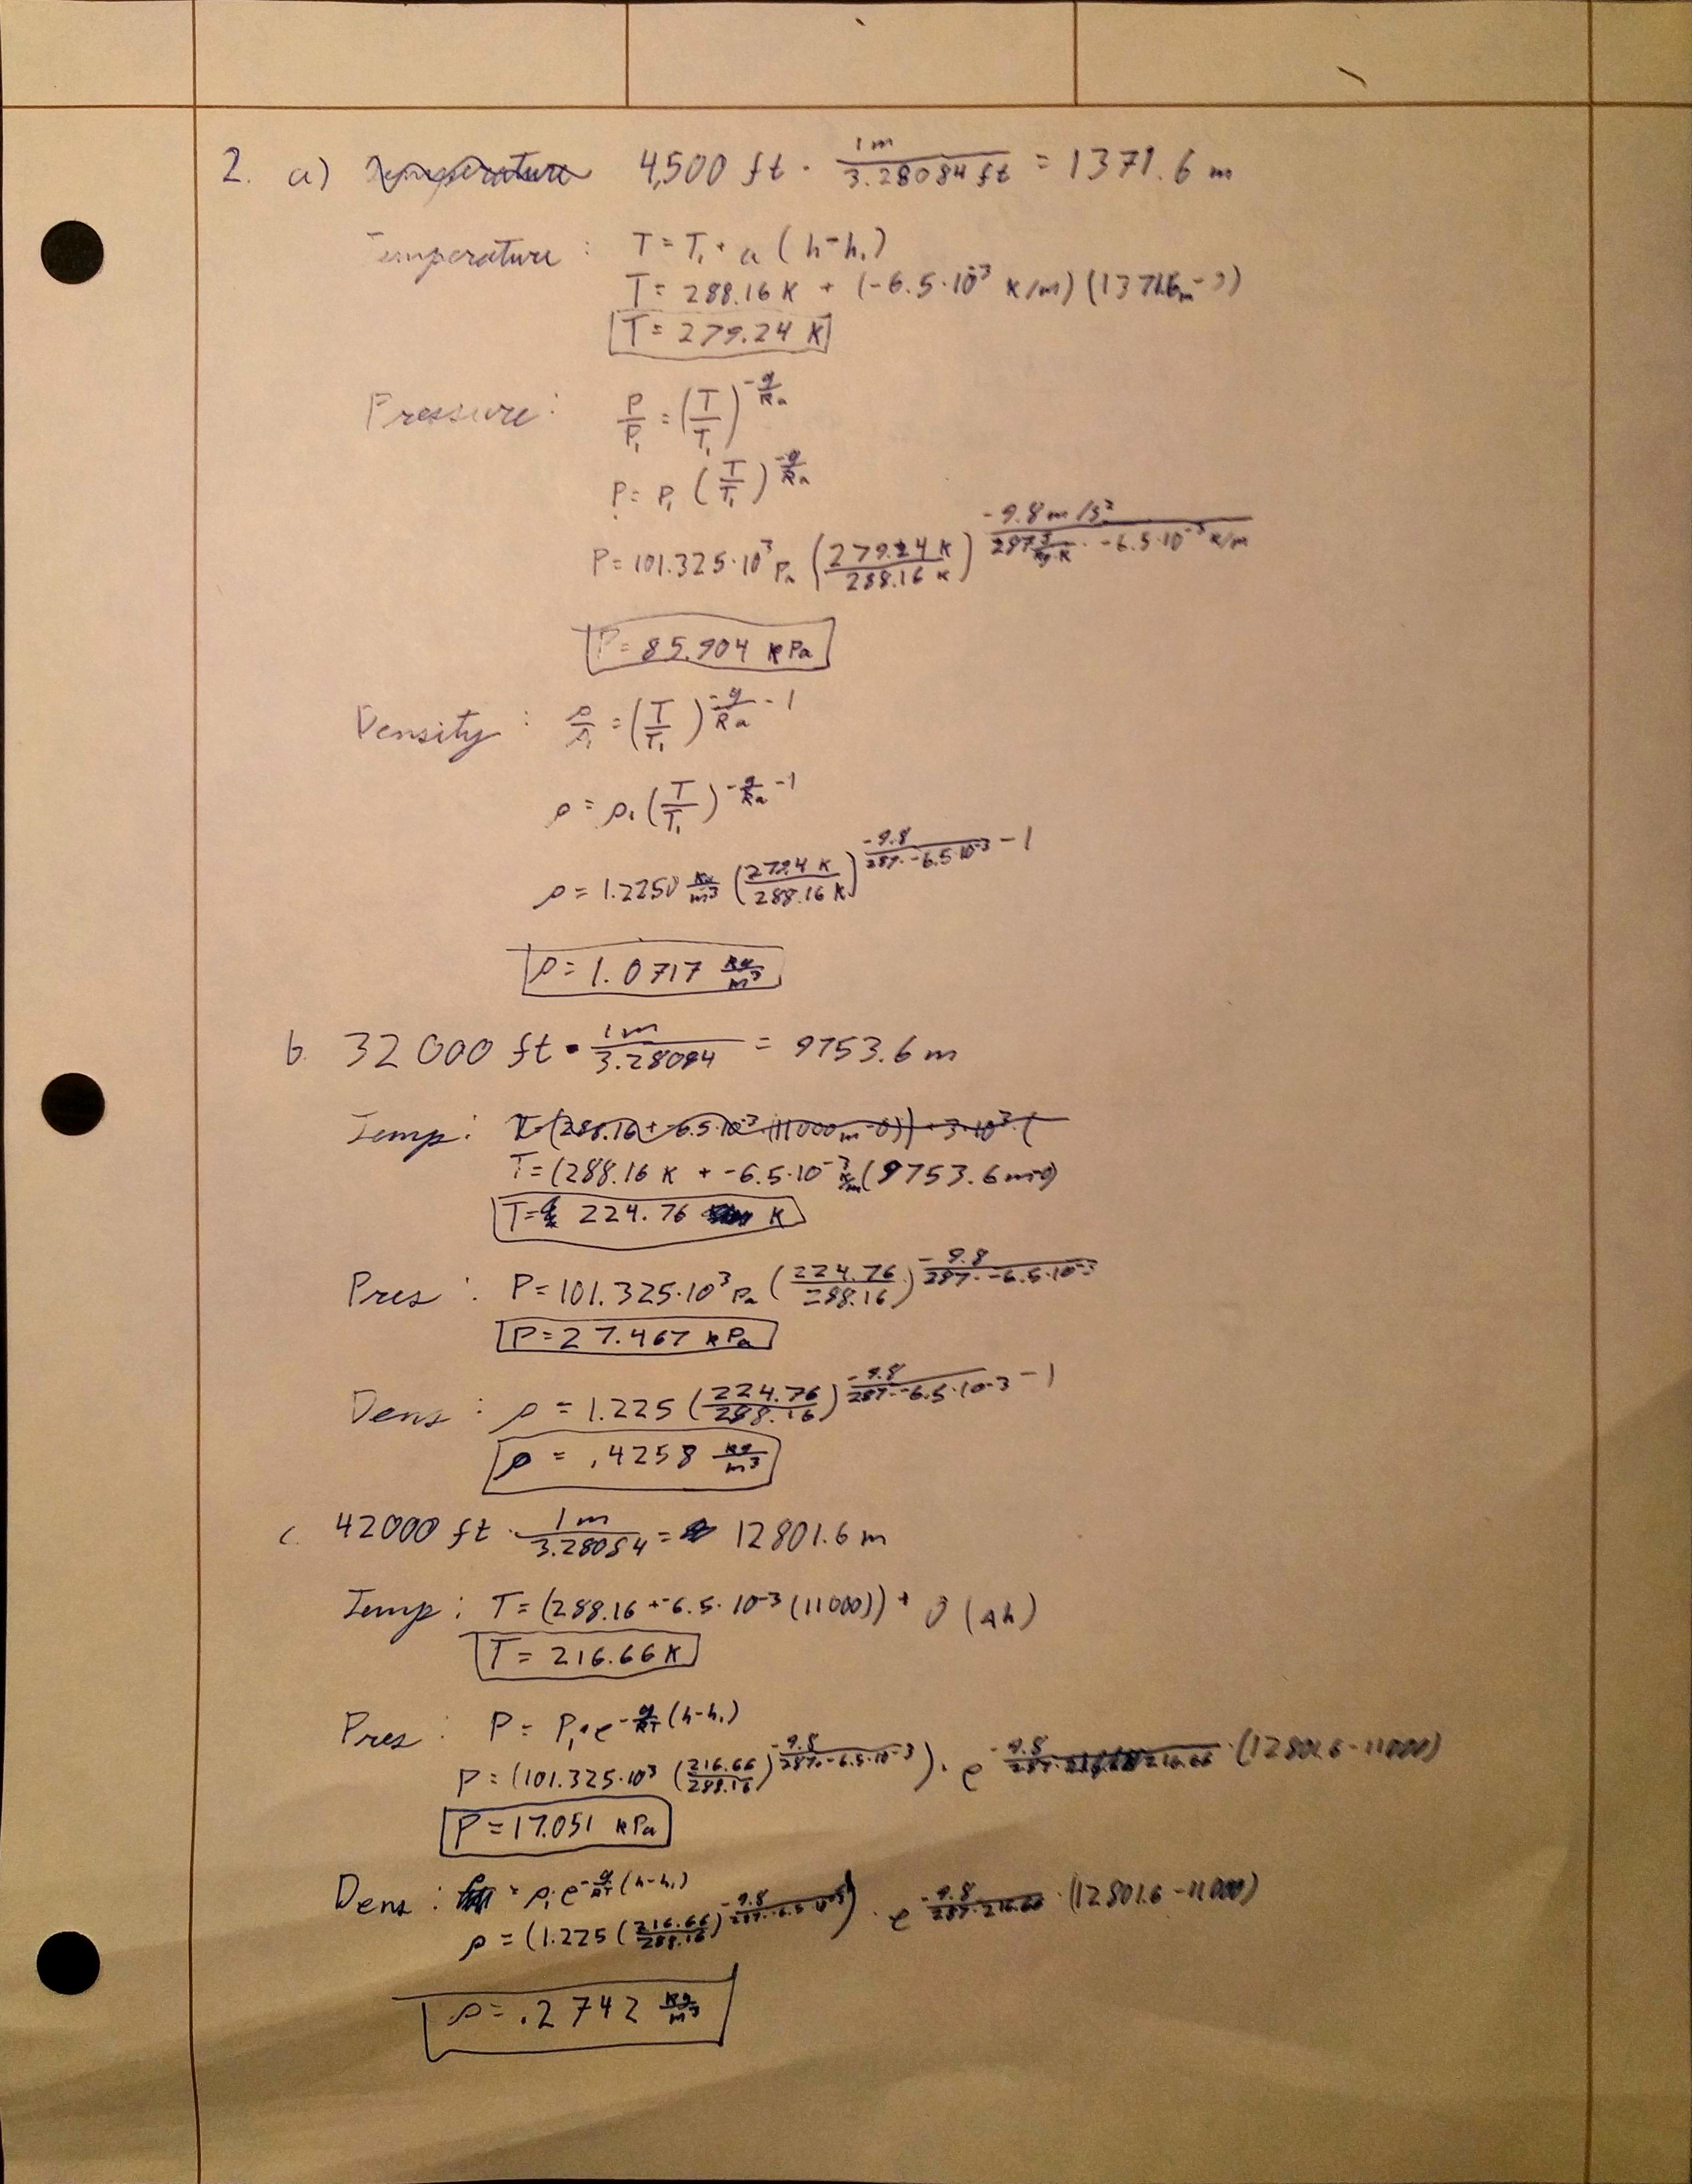 2. a) 4,500 ft · 1m/3.28084 ft = 1371.6 m
Temperature : T = T₁ + a (h-h₁)
T = 288.16 K + (-6.5·10⁻³ K/m) (1371.6m - 0)
T = 279.24 K
Pressure : P/P₁ = (T/T₁)^(-g/Ra)
P = P₁ (T/T₁)^(-g/Ra)
P = 101.325·10³ Pa (279.24 K/288.16 K)^(-9.8 m/s²/(287 J/kg·K · -6.5·10⁻³ K/m))
P = 85.904 kPa
Density : ρ/ρ₁ = (T/T₁)^(-g/Ra - 1)
ρ = ρ₁ (T/T₁)^(-g/Ra - 1)
ρ = 1.2250 kg/m³ (279.4 K/288.16 K)^(-9.8/(287·-6.5·10⁻³) - 1)
ρ = 1.0717 kg/m³
b. 32000 ft · 1m/3.28084 = 9753.6 m
Temp : T=(288.16 + -6.5·10⁻³ (11000m-0)) + 3·10³ (
T = (288.16 K + -6.5·10⁻³ K/m (9753.6m-0)
T = 224.76 K
Pres : P = 101.325·10³ Pa (224.76/288.16)^(-9.8/(287·-6.5·10⁻³))
P = 27.467 kPa
Dens : ρ = 1.225 (224.76/288.16)^(-9.8/(287·-6.5·10⁻³) - 1)
ρ = .4258 kg/m³
c. 42000 ft · 1m/3.28084 = 12801.6 m
Temp : T = (288.16 + -6.5·10⁻³ (11000)) + 0 (Δh)
T = 216.66 K
Pres : P = P₁·e^(-g/RT (h-h₁))
P = (101.325·10³ (216.66/288.16)^(-9.8/(287·-6.5·10⁻³))) · e^(-9.8/(287·216.66) · (12801.6-11000))
P = 17.051 kPa
Dens : = ρ₁ e^(-g/RT (h-h₁))
ρ = (1.225 (216.66/288.16)^(-9.8/(287·-6.5·10⁻³))) · e^(-9.8/(287·216.66) · (12801.6-11000))
ρ = .2742 kg/m³